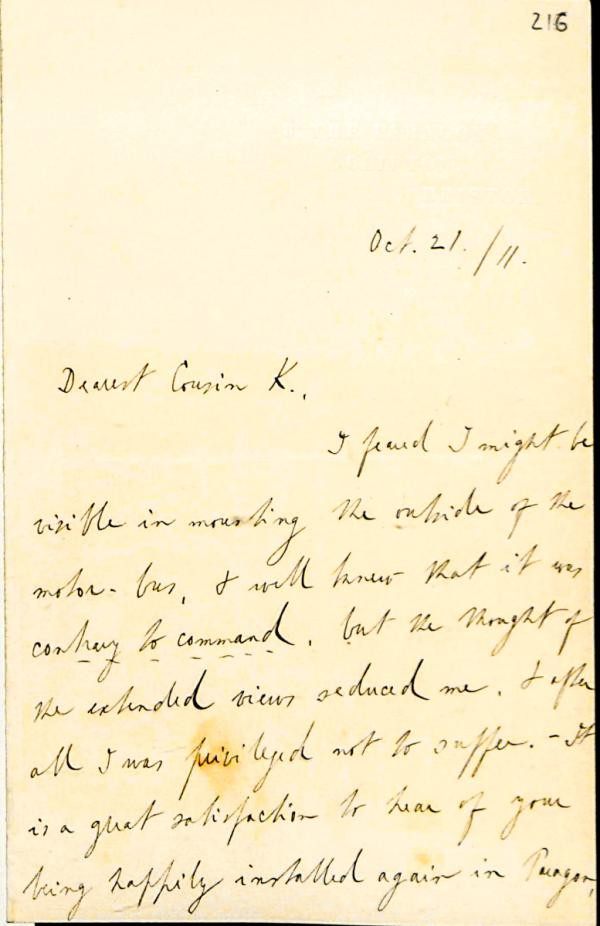 216
Oct. 21. /11.
Dearest Cousin K.,
I feared I might be
visible in mounting the outside of the
motor-bus, & well knew that it was
contrary to command, but the thought of
the extended views seduced me. & after
all I was privileged not to suffer. - It
is a great satisfaction to hear of your
being happily installed again in Paragon,